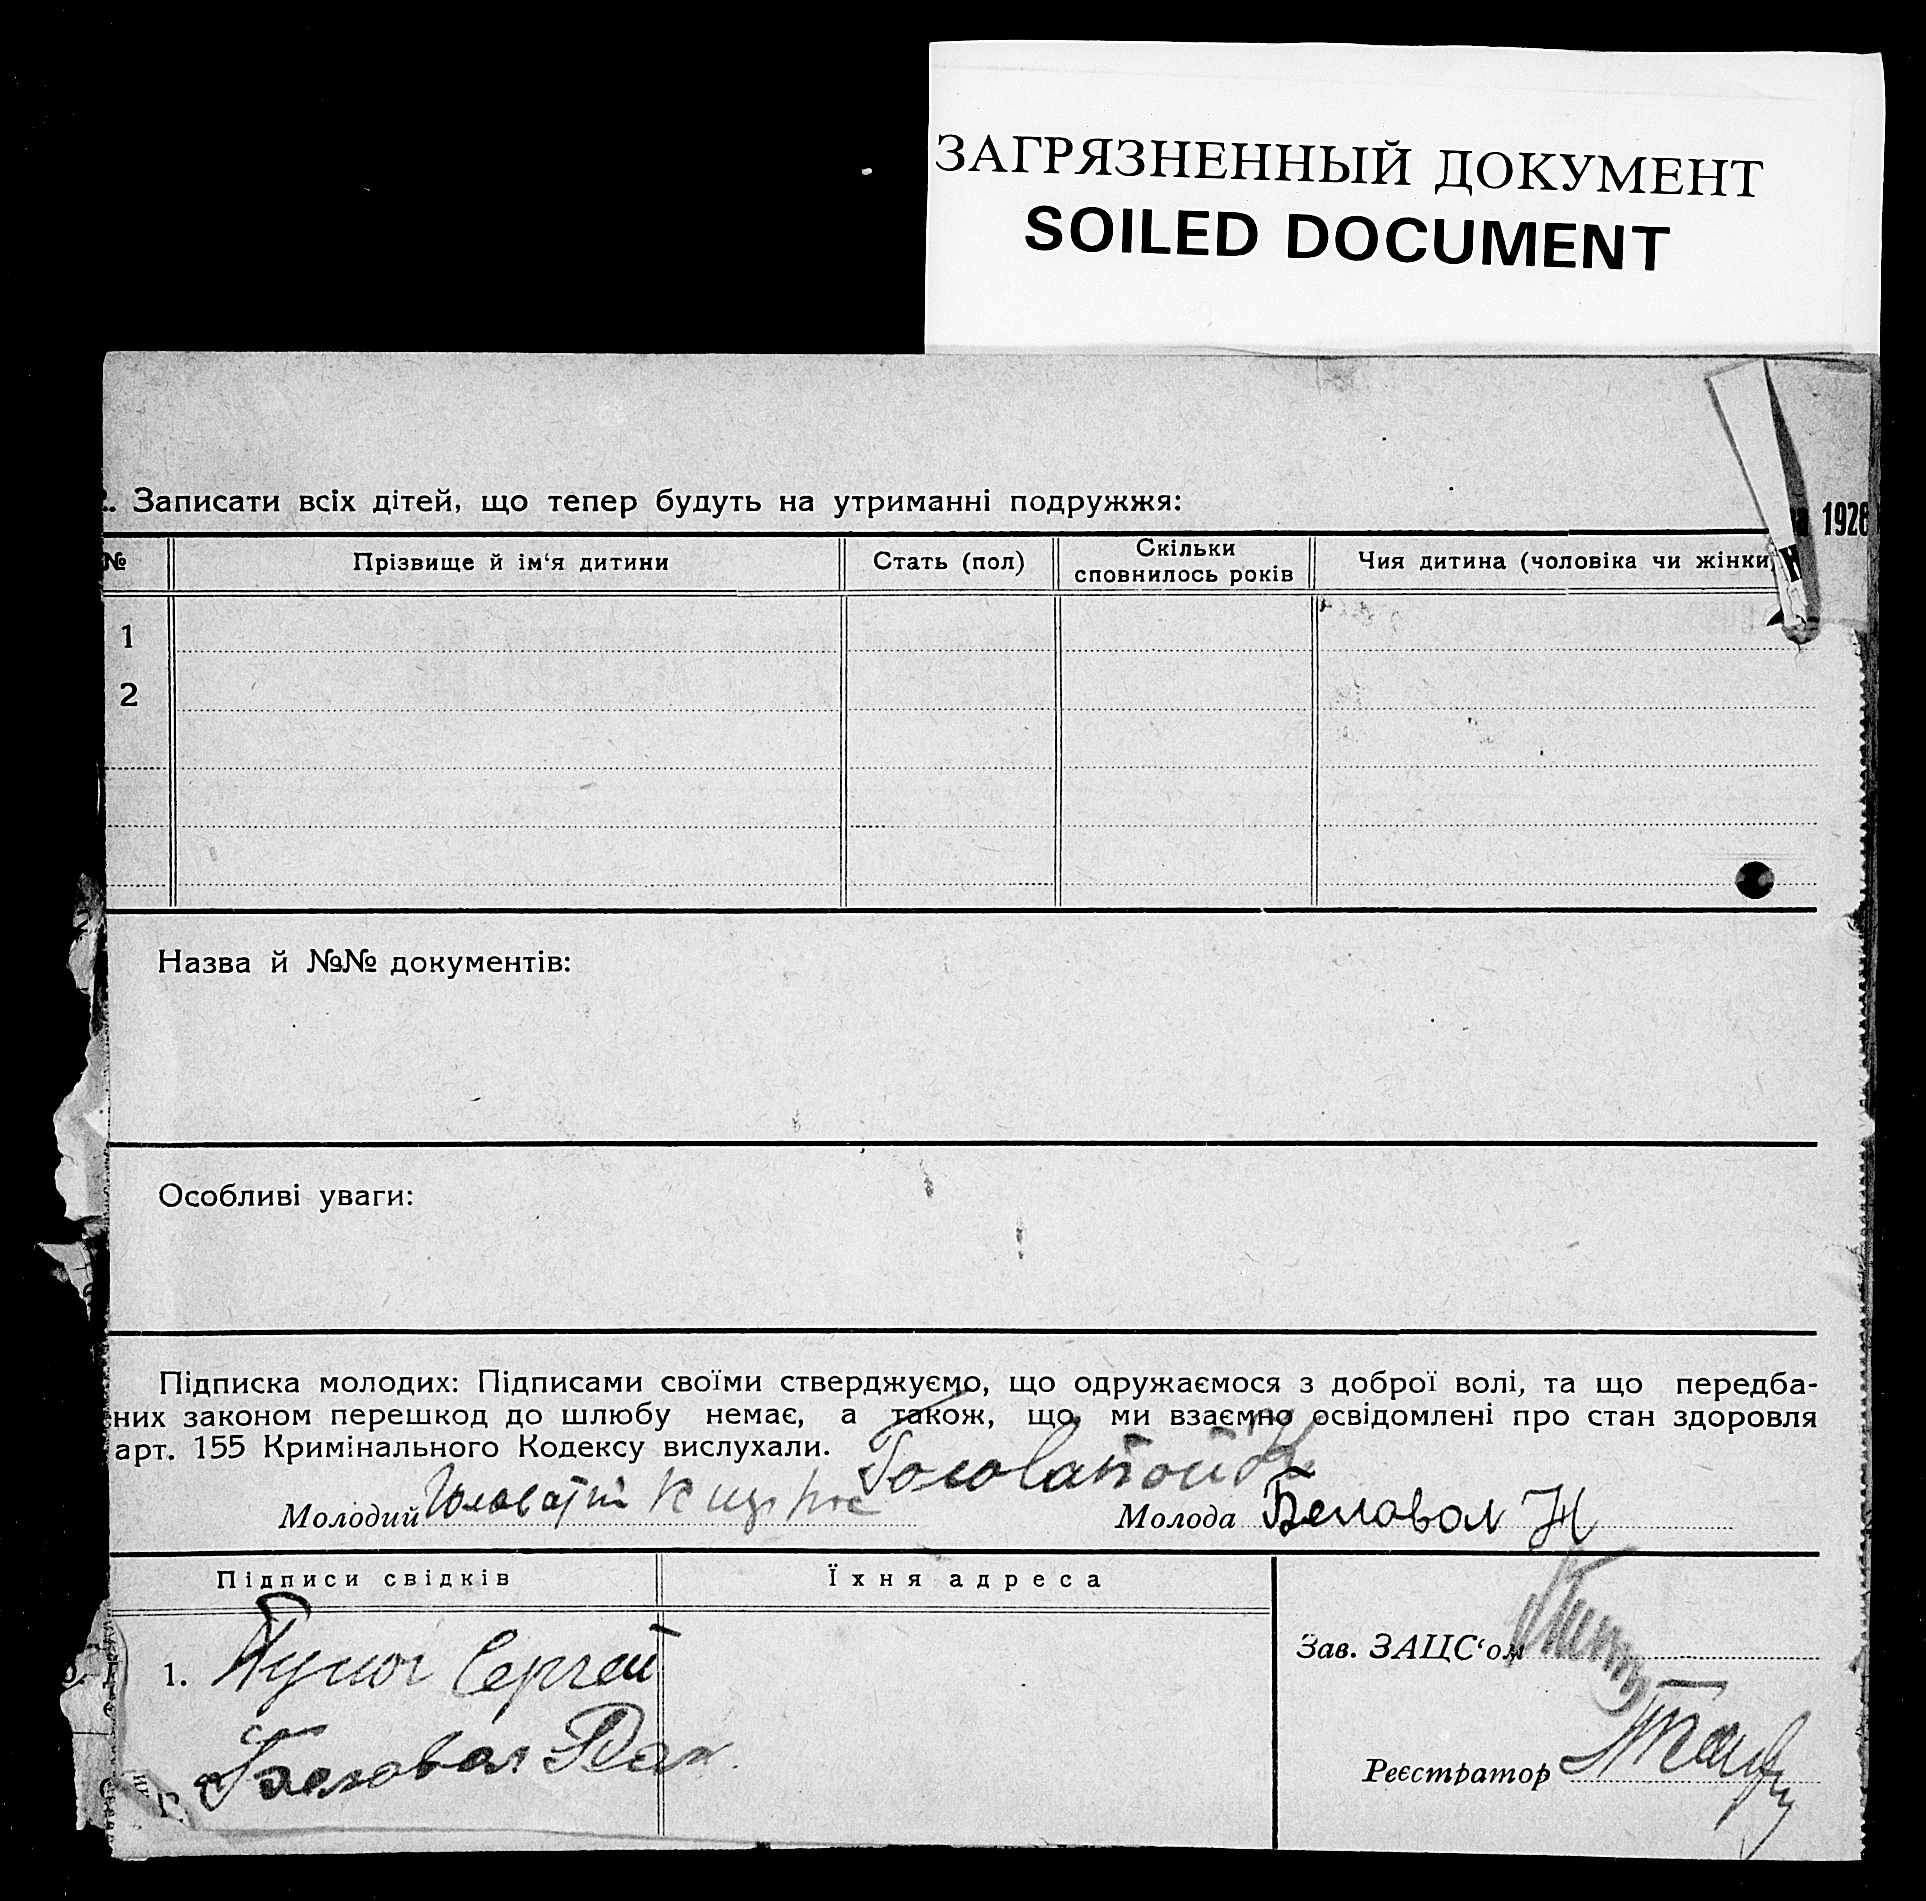 ЗАГРЯЗНЕННЫЙ ДОКУМЕНТ
SOILED DOCUMENT
Записати всіх дітей, що тепер будуть на утриманні подружжя:
1926
№ Прізвище й ім‘я дитини Стать (пол) Скільки сповнилось років Чия дитина (чоловіка чи жінки
1
2
Назва й №№ документів:
Особливі уваги:
Підписка молодих: Підписами своїми стверджуємо, що одружаємося з доброї волі, та що передба-
них законом перешкод до шлюбу немає, а також, що ми взаємно освідомлені про стан здоровля
арт. 155 Кримінального Кодексу вислухали.
Молодий Молода Беловол Н
Підписи свідків Їхня адреса
Зав. ЗАЦС‘ом
1. Сергей
Беловол
Реєстратор